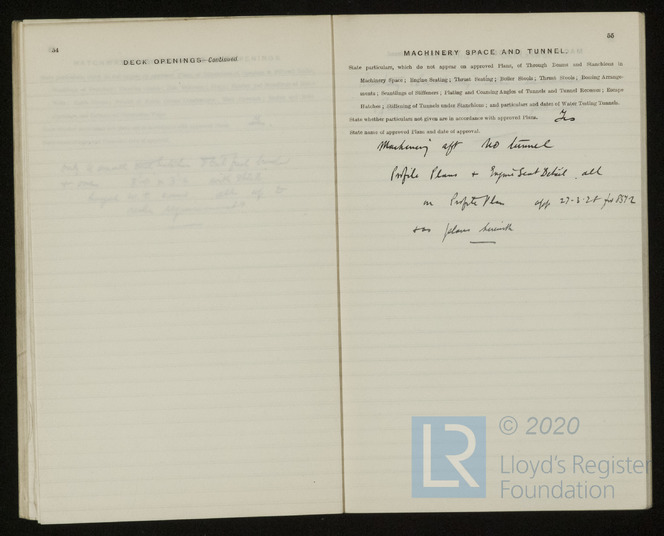 54
DECK OPENINGS—Continued.
55
MACHINERY SPACE AND TUNNEL.
State particulars, which do not appear on approved Plans, of Through Beams and Stanchions in
Machinery Space; Engine Seating; Thrust Seating; Boiler Stools; Thrust Stools; Bossing Arrange-
ments; Scantlings of Stiffeners; Plating and Coaming Angles of Tunnels and Tunnel Recesses; Escape
Hatches; Stiffening of Tunnels under Stanchions; and particulars and dates of Water Testing Tunnels.
State whether particulars not given are in accordance with approved Plans. Yes
State name of approved Plans and date of approval.
Machinery aft No tunnel
Profile Plans + Engine Seat Detail all
on Profile Plan app 27-3-28 for 8392
plans herewith
LR
© 2020
Lloyd's Register
Foundation